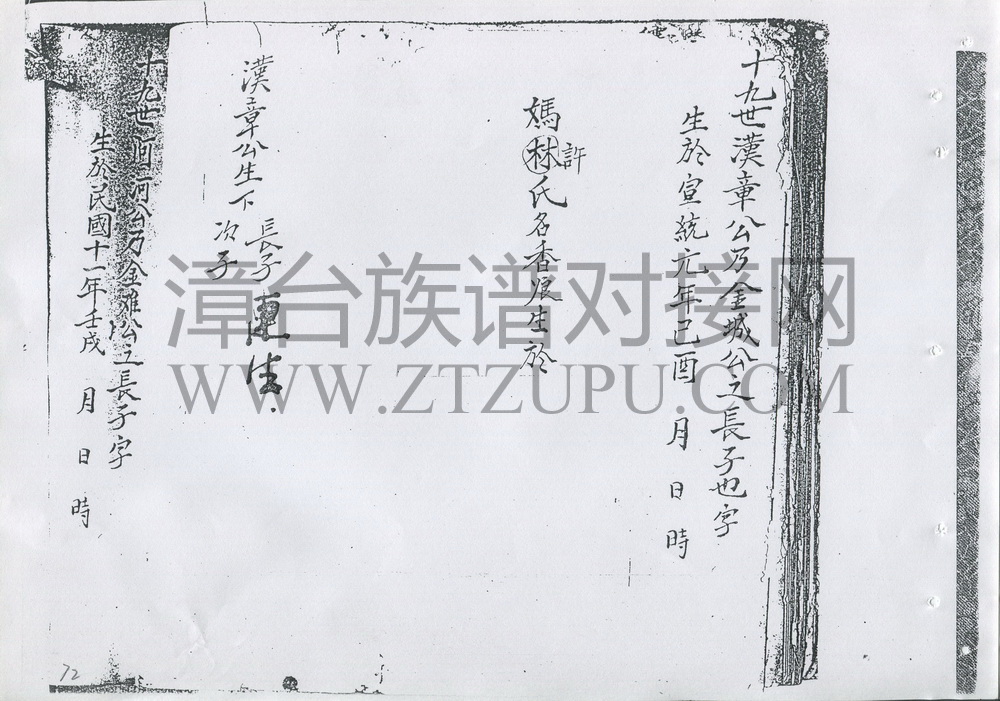 十九世漢章公乃金城公之長子也字
生於宣統元年己酉 月 日 時
許
媽林氏名香 生於
漢章公生下 長子
次子
十九世 河公乃金 公之長子字
生於民國十一年壬戌 月 日 時
漳台族谱对接网
WWW.ZTZUPU.COM
72